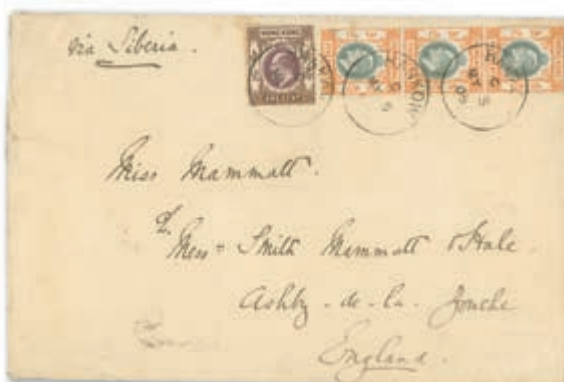 via Siberia.
HONG KONG
HANKOW
Miss Mammatt.
Mess= Smith Mammatt & Hale.
Ashby-de-la-Zouche
England.